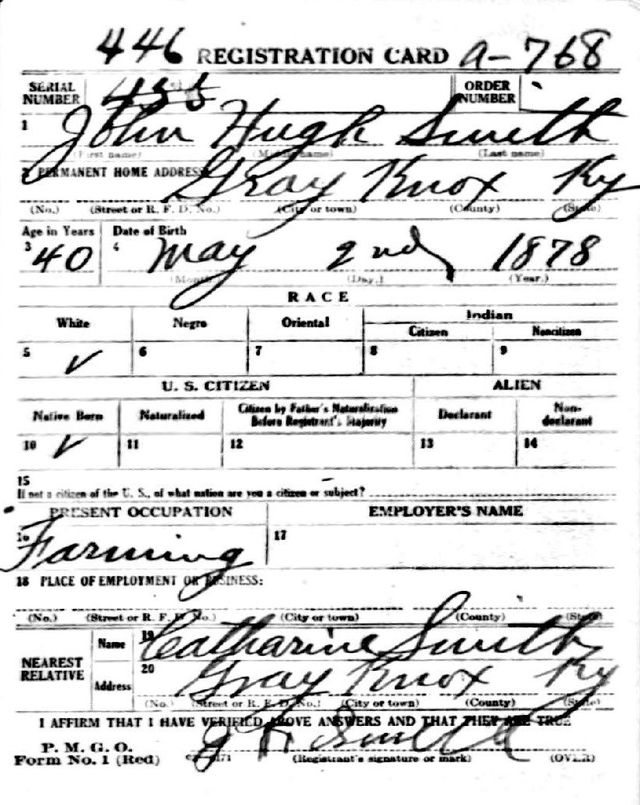 446 REGISTRATION CARD a-768
SERIAL NUMBER 455 ORDER NUMBER
1 John Hugh Smith
(First name) (Middle name) (Last name)
2 PERMANENT HOME ADDRESS Gray Knox Ky
(No.) (Street or R. F. D. No.) (City or town) (County) (State)
Age in Years Date of Birth
3 40 4 May 2nd, 1878
(Month.) (Day.) (Year.)
RACE
White Negro Oriental Indian
Citizen Noncitizen
5 ✓ 6 7 8 9
U. S. CITIZEN ALIEN
Native Born Naturalized Citizen by Father's Naturalization Before Registrant's Majority Declarant Non-declarant
10 ✓ 11 12 13 14
15
If not a citizen of the U. S., of what nation are you a citizen or subject?
PRESENT OCCUPATION EMPLOYER'S NAME
16 Farming 17
18 PLACE OF EMPLOYMENT OR BUSINESS:
(No.) (Street or R. F. D. No.) (City or town) (County) (State)
NEAREST RELATIVE Name 19 Catharine Smith
Address 20 Gray Knox Ky
(No.) (Street or R. F. D. No.) (City or town) (County) (State)
I AFFIRM THAT I HAVE VERIFIED ABOVE ANSWERS AND THAT THEY ARE TRUE
P. M. G. O.
Form No. 1 (Red) J H Smith
(Registrant's signature or mark) (OVER)